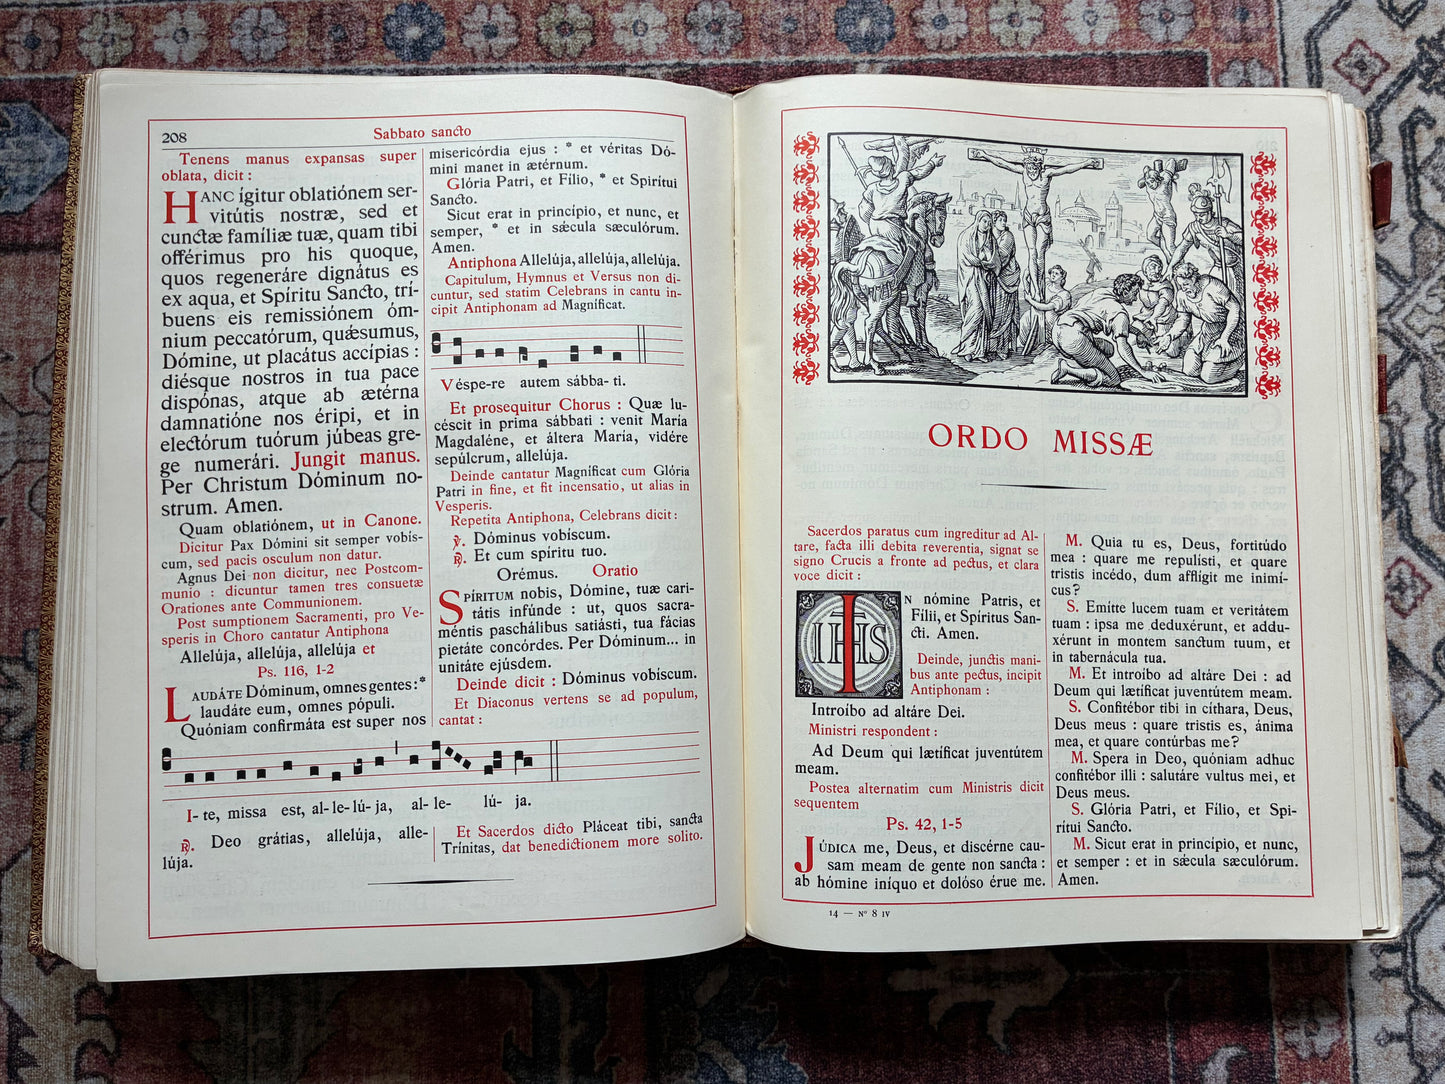 208
Sabbato sancto
Tenens manus expansas super
oblata, dicit :
HANC ígitur oblatiónem ser-
vitútis nostræ, sed et
cunctæ famíliæ tuæ, quam tibi
offérimus pro his quoque,
quos regeneráre dignátus es
ex aqua, et Spíritu Sancto, trí-
buens eis remissiónem óm-
nium peccatórum, quǽsumus,
Dómine, ut placátus accípias :
diésque nostros in tua pace
dispónas, atque ab ætérna
damnatióne nos éripi, et in
electórum tuórum júbeas gre-
ge numerári. Jungit manus.
Per Christum Dóminum no-
strum. Amen.
Quam oblatiónem, ut in Canone.
Dicitur Pax Dómini sit semper vobís-
cum, sed pacis osculum non datur.
Agnus Dei non dicitur, nec Postcom-
munio : dicuntur tamen tres consuetæ
Orationes ante Communionem.
Post sumptionem Sacramenti, pro Ve-
speris in Choro cantatur Antiphona
Allelúja, allelúja, allelúja et
Ps. 116, 1-2
LAUDÁTE Dóminum, omnes gentes : *
laudáte eum, omnes pópuli.
Quóniam confirmáta est super nos
misericórdia ejus : * et véritas Dó-
mini manet in ætérnum.
Glória Patri, et Fílio, * et Spirítui
Sancto.
Sicut erat in princípio, et nunc, et
semper, * et in sǽcula sæculórum.
Amen.
Antiphona Allelúja, allelúja, allelúja.
Capitulum, Hymnus et Versus non di-
cuntur, sed statim Celebrans in cantu in-
cipit Antiphonam ad Magníficat.
Véspe-re autem sábba-ti.
Et prosequitur Chorus : Quæ lu-
céscit in prima sábbati : venit María
Magdaléne, et áltera María, vidére
sepúlcrum, allelúja.
Deinde cantatur Magníficat cum Glória
Patri in fine, et fit incensatio, ut alias in
Vesperis.
Repetita Antiphona, Celebrans dicit :
℣. Dóminus vobíscum.
℟. Et cum spíritu tuo.
Orémus. Oratio
SPÍRITUM nobis, Dómine, tuæ cari-
tátis infúnde : ut, quos sacra-
méntis paschálibus satiásti, tua fácias
pietáte concórdes. Per Dóminum... in
unitáte ejúsdem.
Deinde dicit : Dóminus vobíscum.
Et Diaconus vertens se ad populum,
cantat :
I- te, missa est, al- le- lú- ja, al- le- lú- ja.
℟. Deo grátias, allelúja, alle-
lúja.
Et Sacerdos dicto Pláceat tibi, sancta
Trínitas, dat benedictionem more solito.
ORDO MISSÆ
Sacerdos paratus cum ingreditur ad Al-
tare, facta illi debita reverentia, signat se
signo Crucis a fronte ad pectus, et clara
voce dicit :
IHS
IN nómine Patris, et
Fílii, et Spíritus San-
cti. Amen.
Deinde, junctis mani-
bus ante pectus, incipit
Antiphonam :
Introíbo ad altáre Dei.
Ministri respondent :
Ad Deum qui lætíficat juventútem
meam.
Postea alternatim cum Ministris dicit
sequentem
Ps. 42, 1-5
JÚDICA me, Deus, et discérne cau-
sam meam de gente non sancta :
ab hómine iníquo et dolóso érue me.
M. Quia tu es, Deus, fortitúdo
mea : quare me repulísti, et quare
tristis incédo, dum afflígit me inimí-
cus?
S. Emítte lucem tuam et veritátem
tuam : ipsa me deduxérunt, et addu-
xérunt in montem sanctum tuum, et
in tabernácula tua.
M. Et introíbo ad altáre Dei : ad
Deum qui lætíficat juventútem meam.
S. Confitébor tibi in cíthara, Deus,
Deus meus : quare tristis es, ánima
mea, et quare contúrbas me?
M. Spera in Deo, quóniam adhuc
confitébor illi : salutáre vultus mei, et
Deus meus.
S. Glória Patri, et Fílio, et Spi-
rítui Sancto.
M. Sicut erat in princípio, et nunc,
et semper : et in sǽcula sæculórum.
Amen.
14 — Nº 8 IV